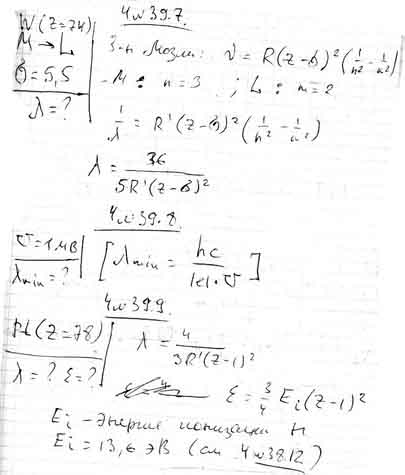 4 и 39.7.
W (Z=74)
M → L
б = 5,5
λ = ?
З-н Мозли: ν = R(Z-б)²(1/n² - 1/n²)
M: n = 3 ; L: m = 2
1/λ = R'(Z-б)²(1/n² - 1/n²)
λ = 36/5R'(Z-б)²
4 и 39.8.
U = 1 МВ
λmin = ?
[λmin = hc/|e|·U]
4 и 39.9.
Pt (Z=78)
λ = ? ε = ?
λ = 4/3R'(Z-1)²
ε = 3/4 Ei(Z-1)²
Ei - энергия ионизации H
Ei = 13,6 эВ (см 4 и 38.12)